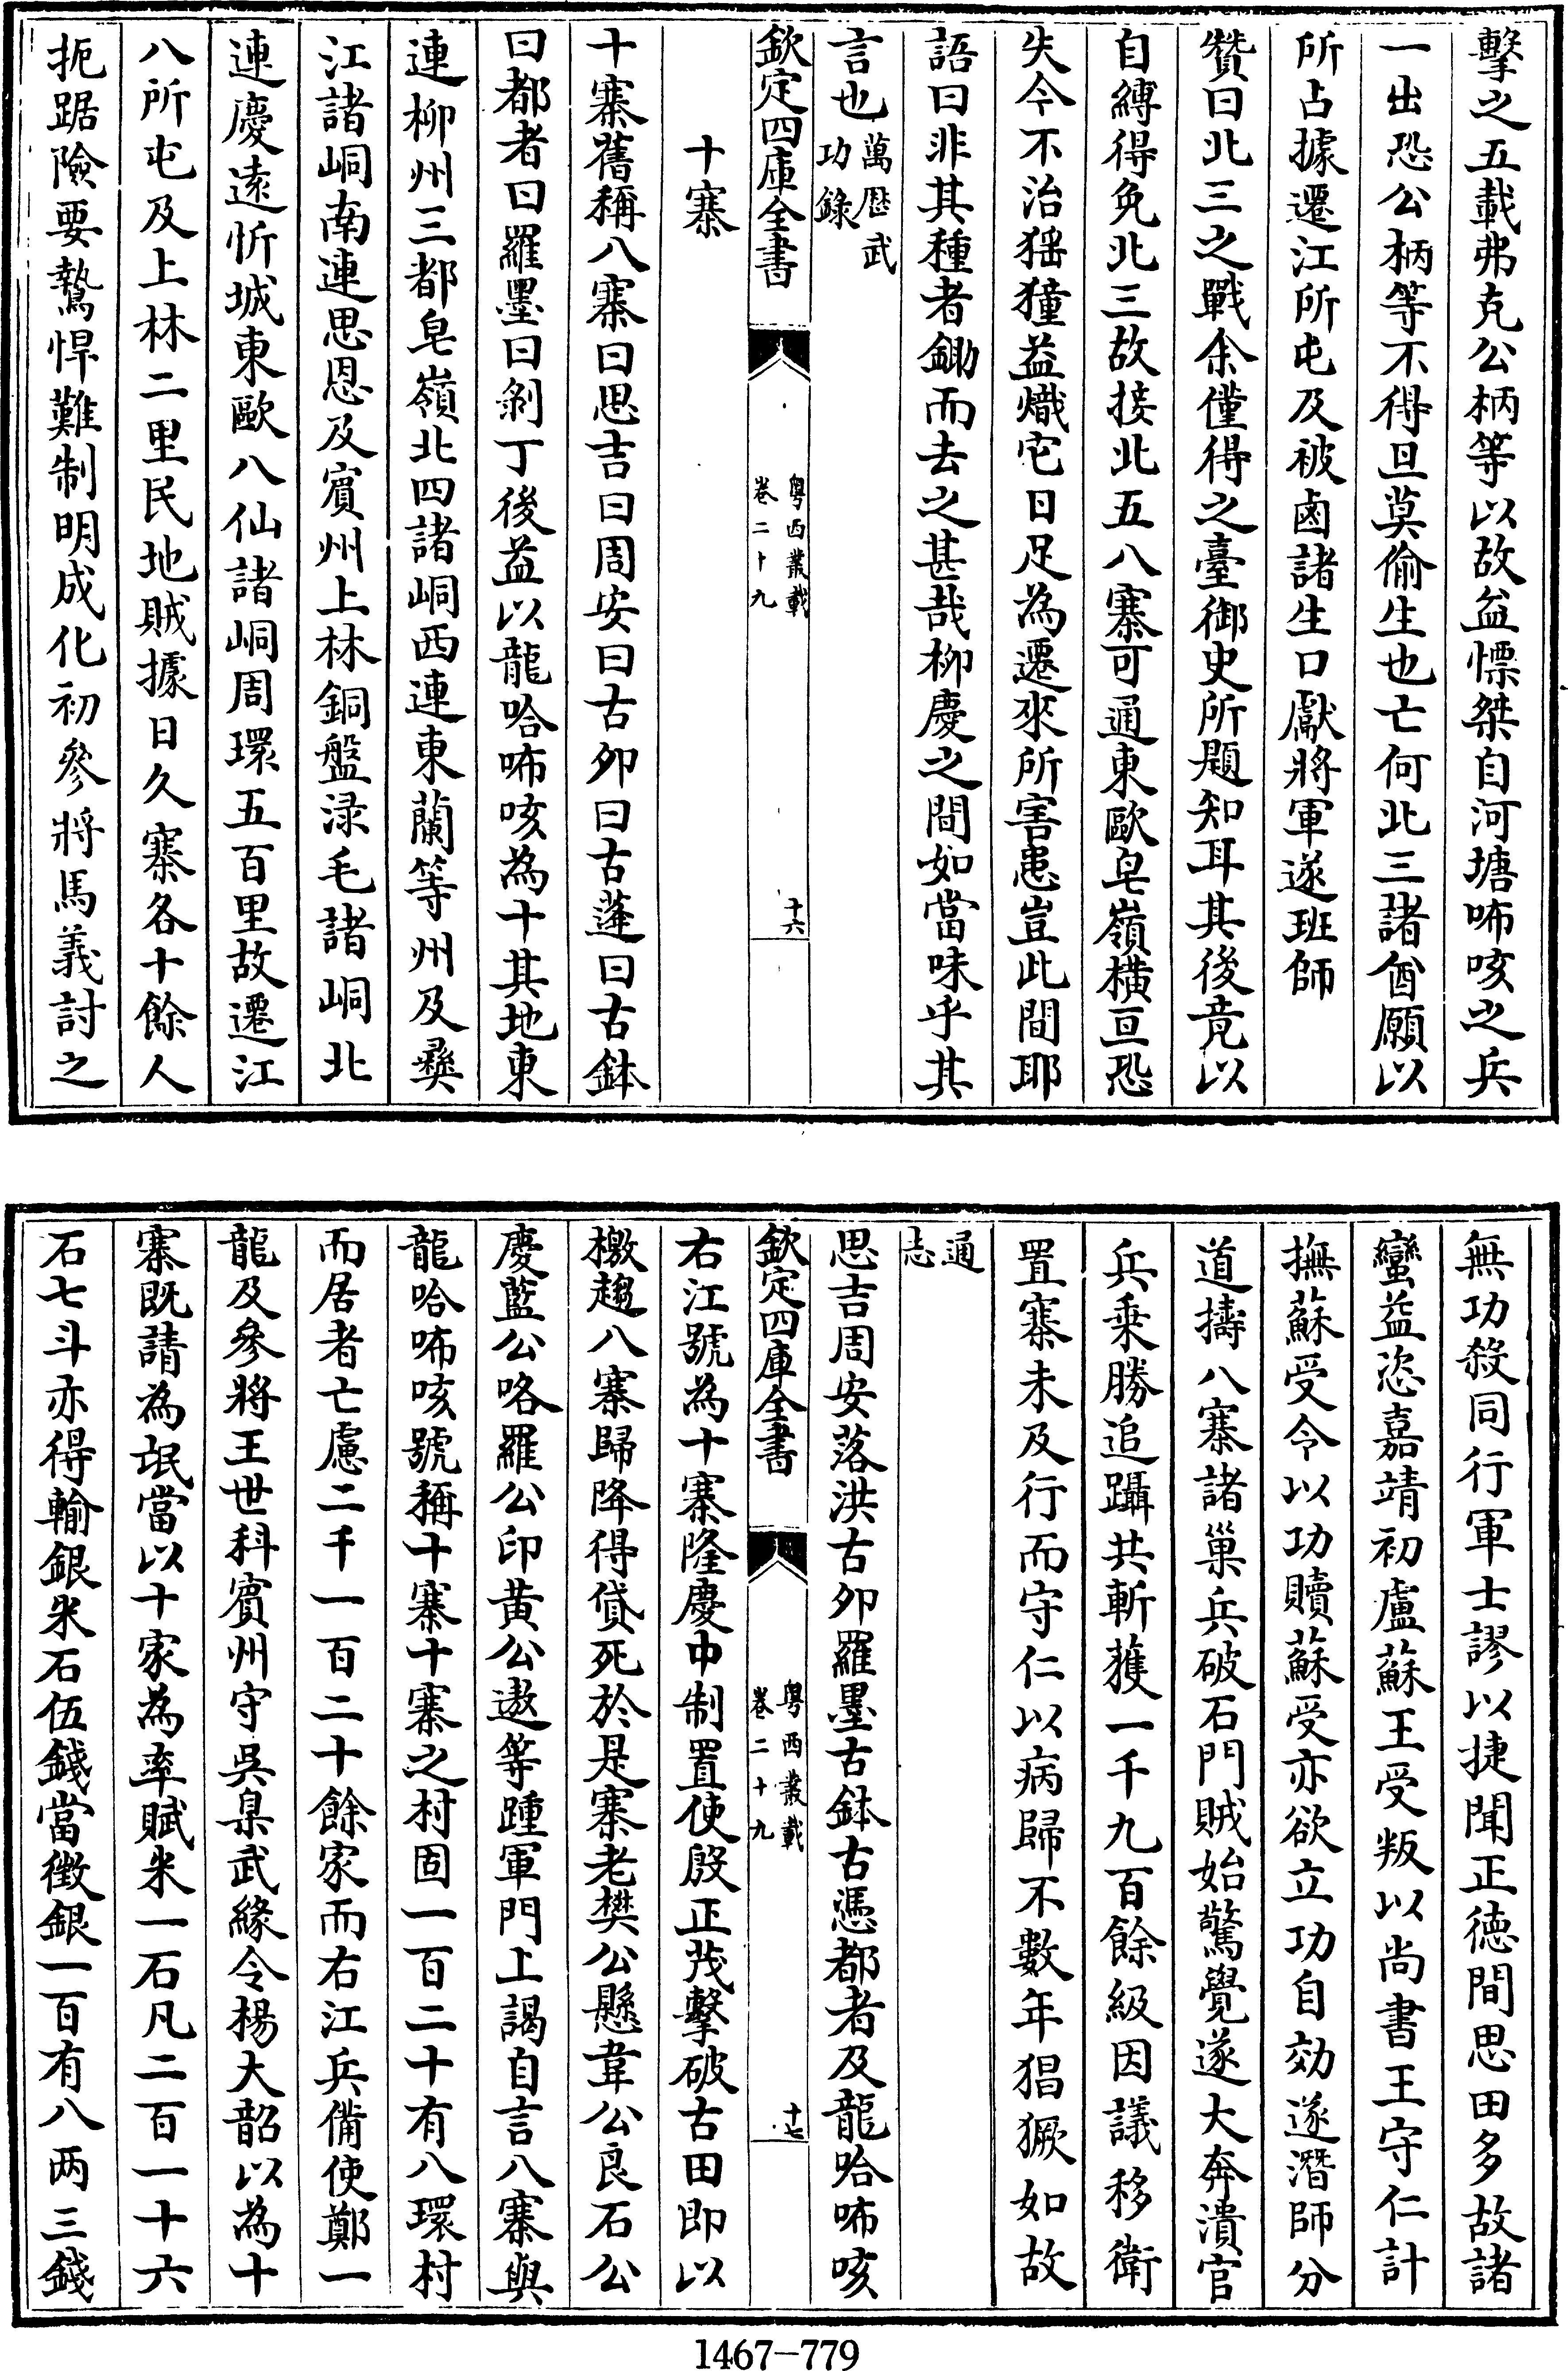 擊之五載弗克公柄等以故益慓桀自河塘咘咳之兵
一出恐公柄等不得旦莫偷生也亡何北三諸酋願以
所占據遷江所屯及被鹵諸生口獻將軍遂班師
贊曰北三之戰余僮得之臺御史所題知耳其後竟以
自縛得免北三故接北五八寨可通東歐皂嶺橫亘恐
失今不治猺獞益熾它日足為遷來所害患豈此間耶
語曰非其種者鋤而去之甚哉柳慶之間如當味乎其
言也萬歷武功錄
欽定四庫全書 粤西叢載 卷二十九 十六
十寨
十寨舊稱八寨曰思吉曰周安曰古卯曰古蓬曰古鉢
曰都者曰羅墨曰剝丁後益以龍哈咘咳為十其地東
連柳州三都皂嶺北四諸峒西連東蘭等州及彝
江諸峒南連思恩及賓州上林銅盤淥毛諸峒北
連慶遠忻城東歐八仙諸峒周環五百里故遷江
八所屯及上林二里民地賊據日久寨各十餘人
扼踞險要驁悍難制明成化初參將馬義討之
無功殺同行軍士謬以捷聞正德間思田多故諸
蠻益恣嘉靖初盧蘇王受叛以尚書王守仁計
撫蘇受令以功贖蘇受亦欲立功自効遂潛師分
道擣八寨諸巢兵破石門賊始驚覺遂大奔潰官
兵乗勝追躡共斬獲一千九百餘級因議移衛
置寨未及行而守仁以病歸不數年猖獗如故
通志
思吉周安落洪古卯羅墨古鉢古憑都者及龍哈咘咳
欽定四庫全書 粤西叢載 卷二十九 十七
右江號為十寨隆慶中制置使殷正茂擊破古田即以
檄趨八寨歸降得貸死於是寨老樊公懸韋公良石公
慶藍公咯羅公印黃公遨等踵軍門上謁自言八寨與
龍哈咘咳號稱十寨十寨之村固一百二十有八環村
而居者亡慮二千一百二十餘家而右江兵備使鄭一
龍及參將王世科賓州守吳臯武緣令楊大韶以為十
寨既請為氓當以十家為率賦米一石凡二百一十六
石七斗亦得輸銀米石伍錢當徵銀一百有八两三錢
1467-779